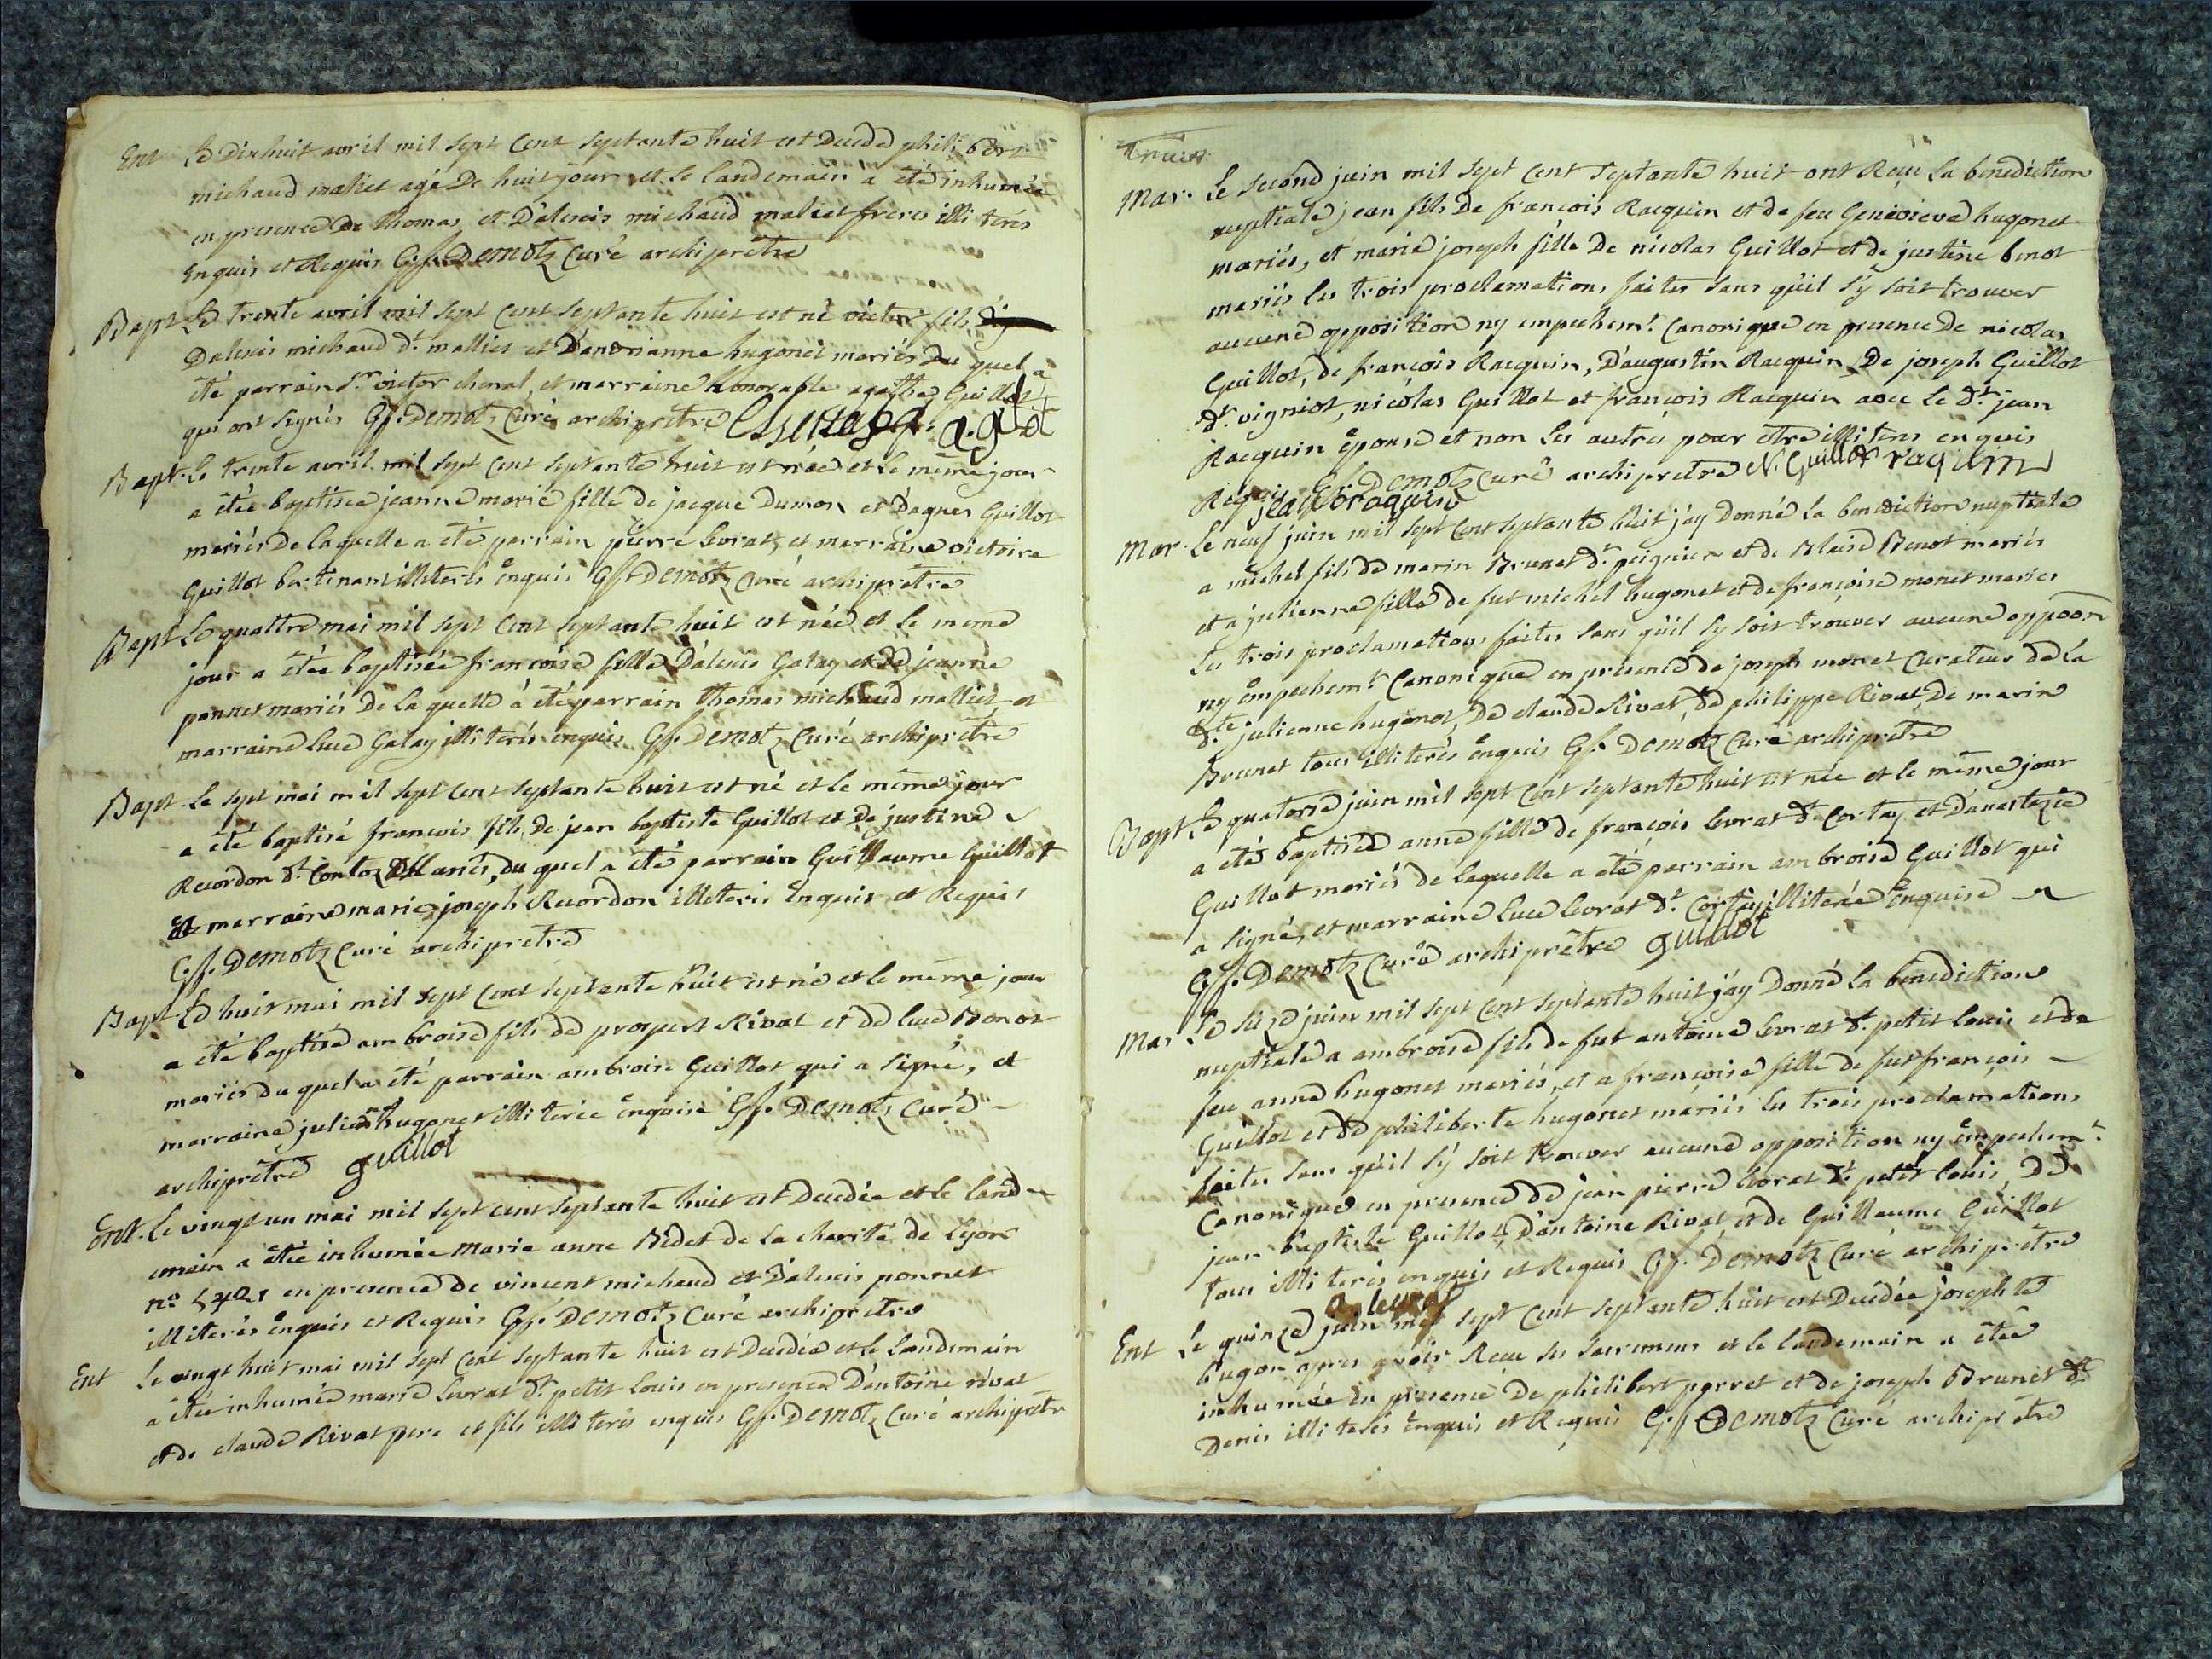 Ent Le Dixhuit avril mil sept cent septante huit est Decede philibert
michaud maliet agé De huit jour et le landemain a été inhumée
en presence De thomas et D'alexis michaud maliet freres illiterés
Enquis et Requis Gf. Demotz Curé archiprêtre
Bapt Le trente avril mil sept cent septante huit est né victor fils
Dalexis michaud dt. malliet et D'anorianne hugonet mariés Du quel a
été parrain Sr. victor chenal, et marraine honorable agathe Guillot
qui ont signés Gf. Demotz Curé archiprêtre Chenal a. guillot
Bapt. Le trente avril mil sept cent septante huit est née et le même jour
a étée baptisée jeanne marie fille de jacque Dumon et D'agnes Guillot
mariés De laquelle a été parrain pierre levrat, et marraine victoire
Guillot bertinant illiterés enquis Gf. Demotz Curé archiprêtre
Bapt Le quattre mai mil sept cent septante huit est née et le meme
jour a étée baptisée francoise fille D'alexis Galay et de jeanne
ponnet mariés De la quelle a été parrain thomas michaud malliet et
marraine luce Galay illiterés enquis Gf. Demotz Curé archiprêtre
Bapt Le sept mai mil sept cent septante huit est né et le même jour
a été baptisé francois fils De jean baptiste Guillot et De justine
Recordon dt. Contoz Mariés, du quel a été parrain Guillaume Guillot
Et marraine marie joseph Recordon illiterés Enquis et Requis
Gf. Demotz Curé archiprêtre
Bapt Le huit mai mil sept cent septante huit est né et le même jour
a été baptisé ambroise fils de prospert Rivat et de luce Benot
mariés du quel a été parrain ambroise Guillot qui a signé, et
marraine julienne hugonet illiterée enquise Gf. Demotz Curé
archiprêtre guillot
Ent. Le vingt un mai mil sept cent septante huit est Decedée et le lande
main a étée inhumée Marie anne Bidet de la charité de Lyon
no. 5421 en presence de vincent michaud et D'alexis ponnet
illiterés enquis et Requis Gf. Demotz Curé archiprêtre
Ent Le vingt huit mai mil sept cent septante huit est Decedée et le landemain
a étée inhumée marie levrat dt. petit louis en presence D'antoine rivat
et de claude Rivat pere et fils illiterés enquis Gf. Demotz Curé archiprêtre
Mar. Le second juin mil sept cent septante huit ont Reçu la benediction
nuptiale jean fils De francois Racquin et de feu Genevieve hugonet
mariés, et marie joseph fille De nicolas Guillot et de justine benot
mariés les trois proclamations faites sans qu'il s'y soit trouver
aucune opposition ny empechemt. Canonique en presence De nicolas
Guillot, de francois Racquin, D'augustin Racquin, De joseph Guillot
dt. vigniot, nicolas Guillot et francois Racquin avec le dt. jean
Racquin épouse et non les autres pour être illiterés enquis
Requis Gf. Demotz Curé archiprêtre N. Guillot raquin
jean raquin
Mar. Le neuf juin mil sept cent septante huit j'ay Donné la benediction nuptiale
a michel fils de marin Brunet dt. peignier et de Blaise Benot mariés
et a julienne fille de fut michel hugonet et de francoise monet mariés
les trois proclamations faites sans qu'il s'y soit trouver aucune oppoon
ny empechemt. Canonique en presence de joseph monet Curateur de la
dte. julienne hugonet, De claude Rivat, de philippe Rivat, De marin
Brunet tous illiterés enquis Gf. Demotz Curé archiprêtre
Bapt Le quatorse juin mil sept cent septante huit est née et le même jour
a été baptisée anne fille de francois levrat dt. Cortay et D'anastazie
Guillot mariés de laquelle a été parrain ambroise Guillot qui
a signé, et marraine luce levrat dt. Cortay illiterée enquise
Gf. Demotz Curé archiprêtre guillot
Mar Le seize juin mil sept cent septante huit j'ay Donné la benediction
nuptiale a ambroise fils de fut antoine levrat dt. petit louis et de
feu anne hugonet mariés, et a francoise fille de fut francois
Guillot et de philiberte hugonet mariés les trois proclamations
faites sans qu'il s'y soit trouver aucune opposition ny empechemt.
Canonique en presence de jean pierre levrat dt. petit louis, De
jean baptiste Guillot, D'antoine Rivat, et de Guillaume Guillot
tous illiterés enquis et Requis Gf. Demotz Curé archiprêtre
a levrat
Ent Le quinze juin mil sept cent septante huit est Decedée josephte
hugon apres avoir Reçu ses sacremens et le landemain a étée
inhumée en presence De philibert perret et de joseph Brunet dt.
Denis illiterés enquis et Requis Gf. Demotz Curé archiprêtre